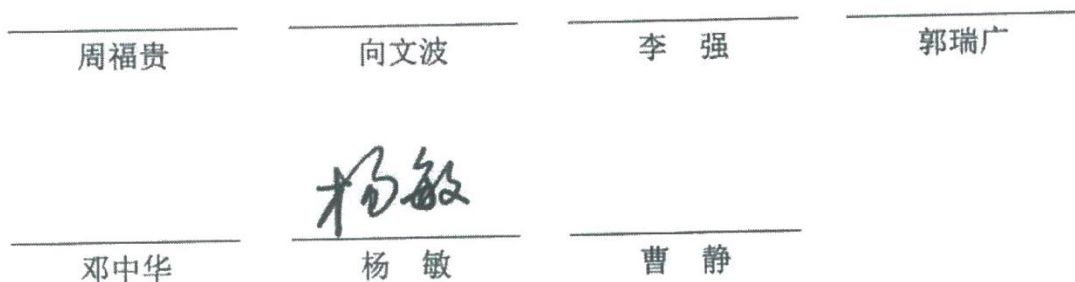 周福贵 向文波 李 强 郭瑞广
杨敏
邓中华 杨 敏 曹 静